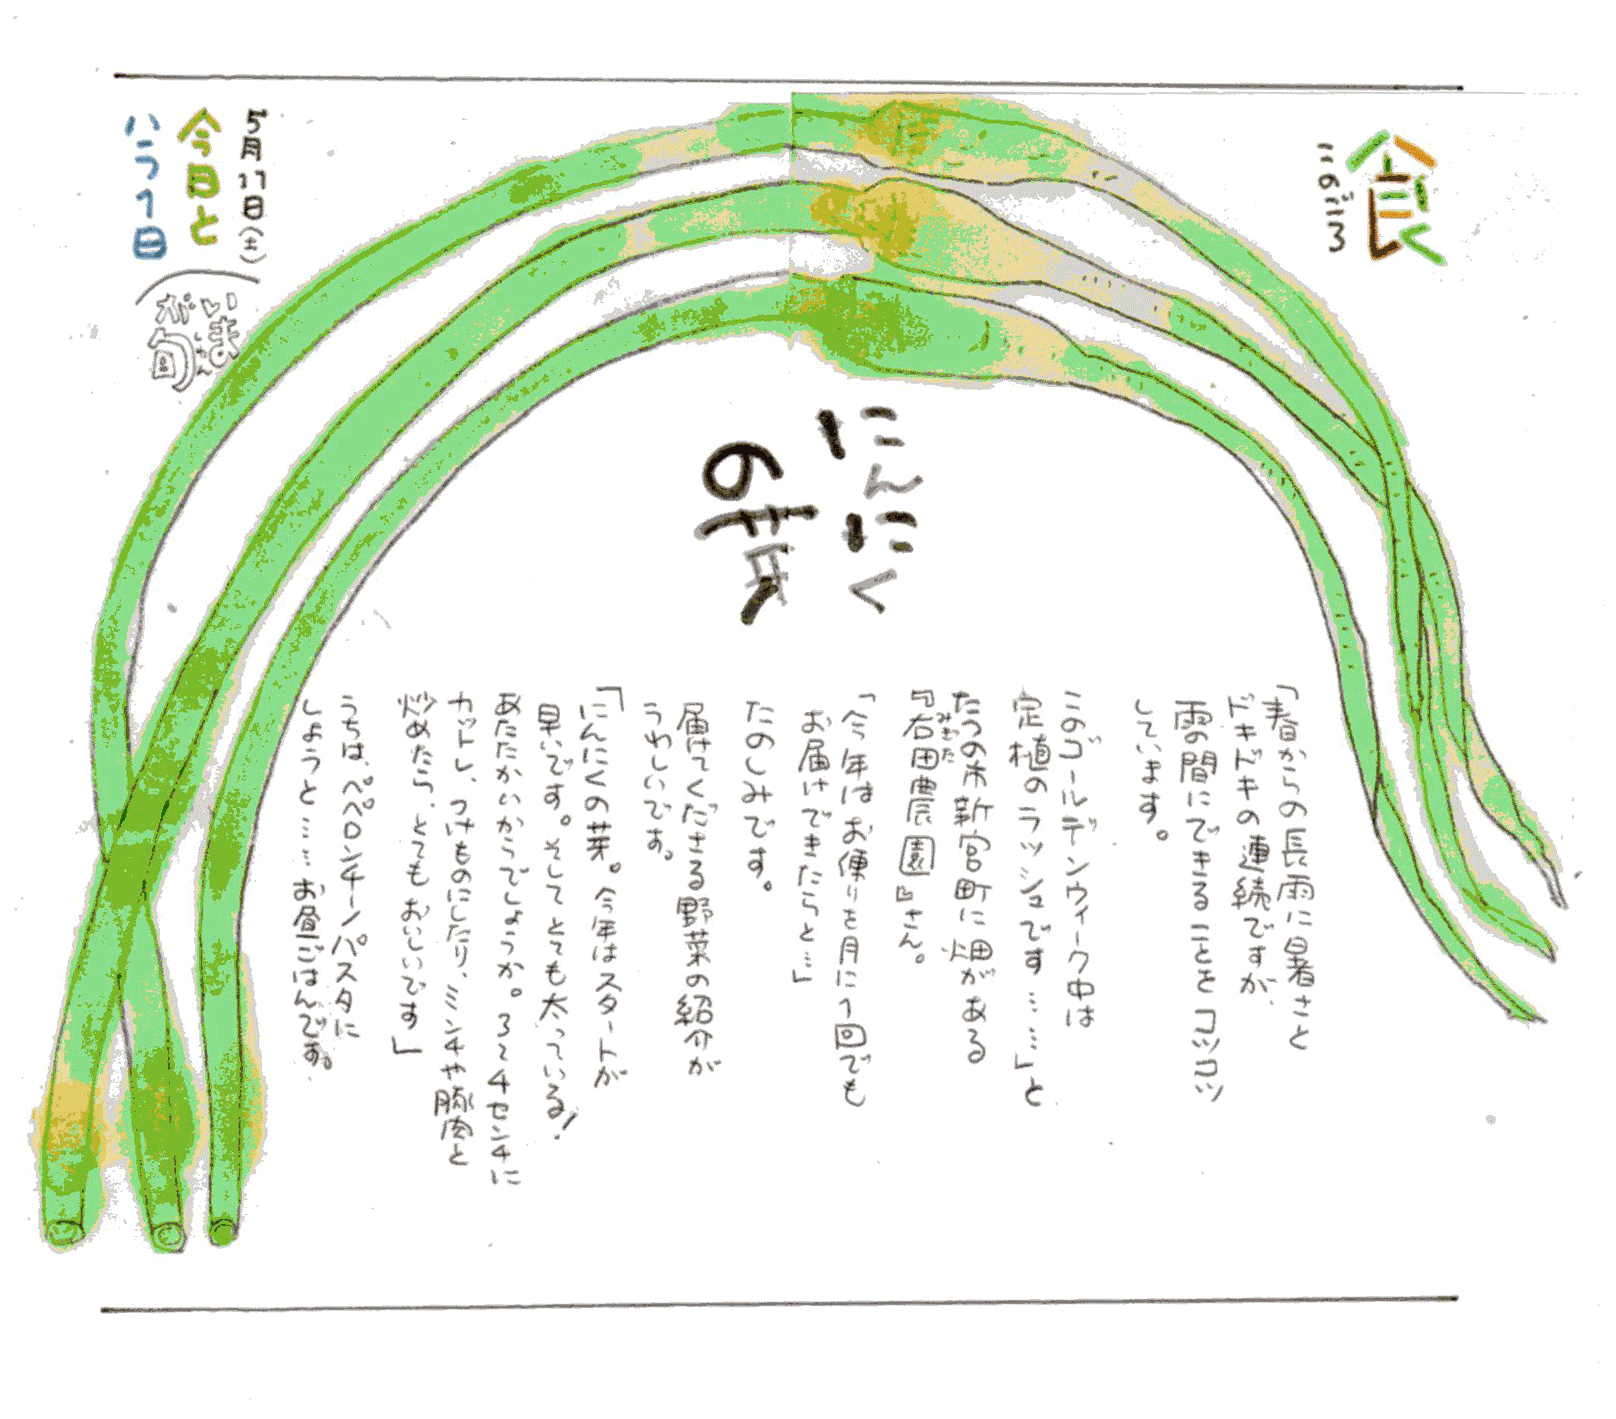 食
このごろ
「春からの長雨に暑さと
ドキドキの連続ですが、
雨の間にできることをコツコツ
しています。
このゴールデンウィーク中は
定植のラッシュです……」と
たつの市新宮町に畑がある
『右田農園』さん。
みぎた
「今年はお便りを月に1回でも
お届けできたらと…」
たのしみです。
届けてくださる野菜の紹介が
うれしいです。
「にんにくの芽。今年はスタートが
早いです。そしてとても太っている!
あたたかいからでしょうか。3〜4センチに
カットし、つけものにしたり、ミンチや豚肉と
炒めたら、とてもおいしいです」
うちは、ペペロンチーノパスタに
しようと……お昼ごはんです。
にんにく
の芽
5月11日(土)
今日と
ハライ日
いま
が旬
しゅん